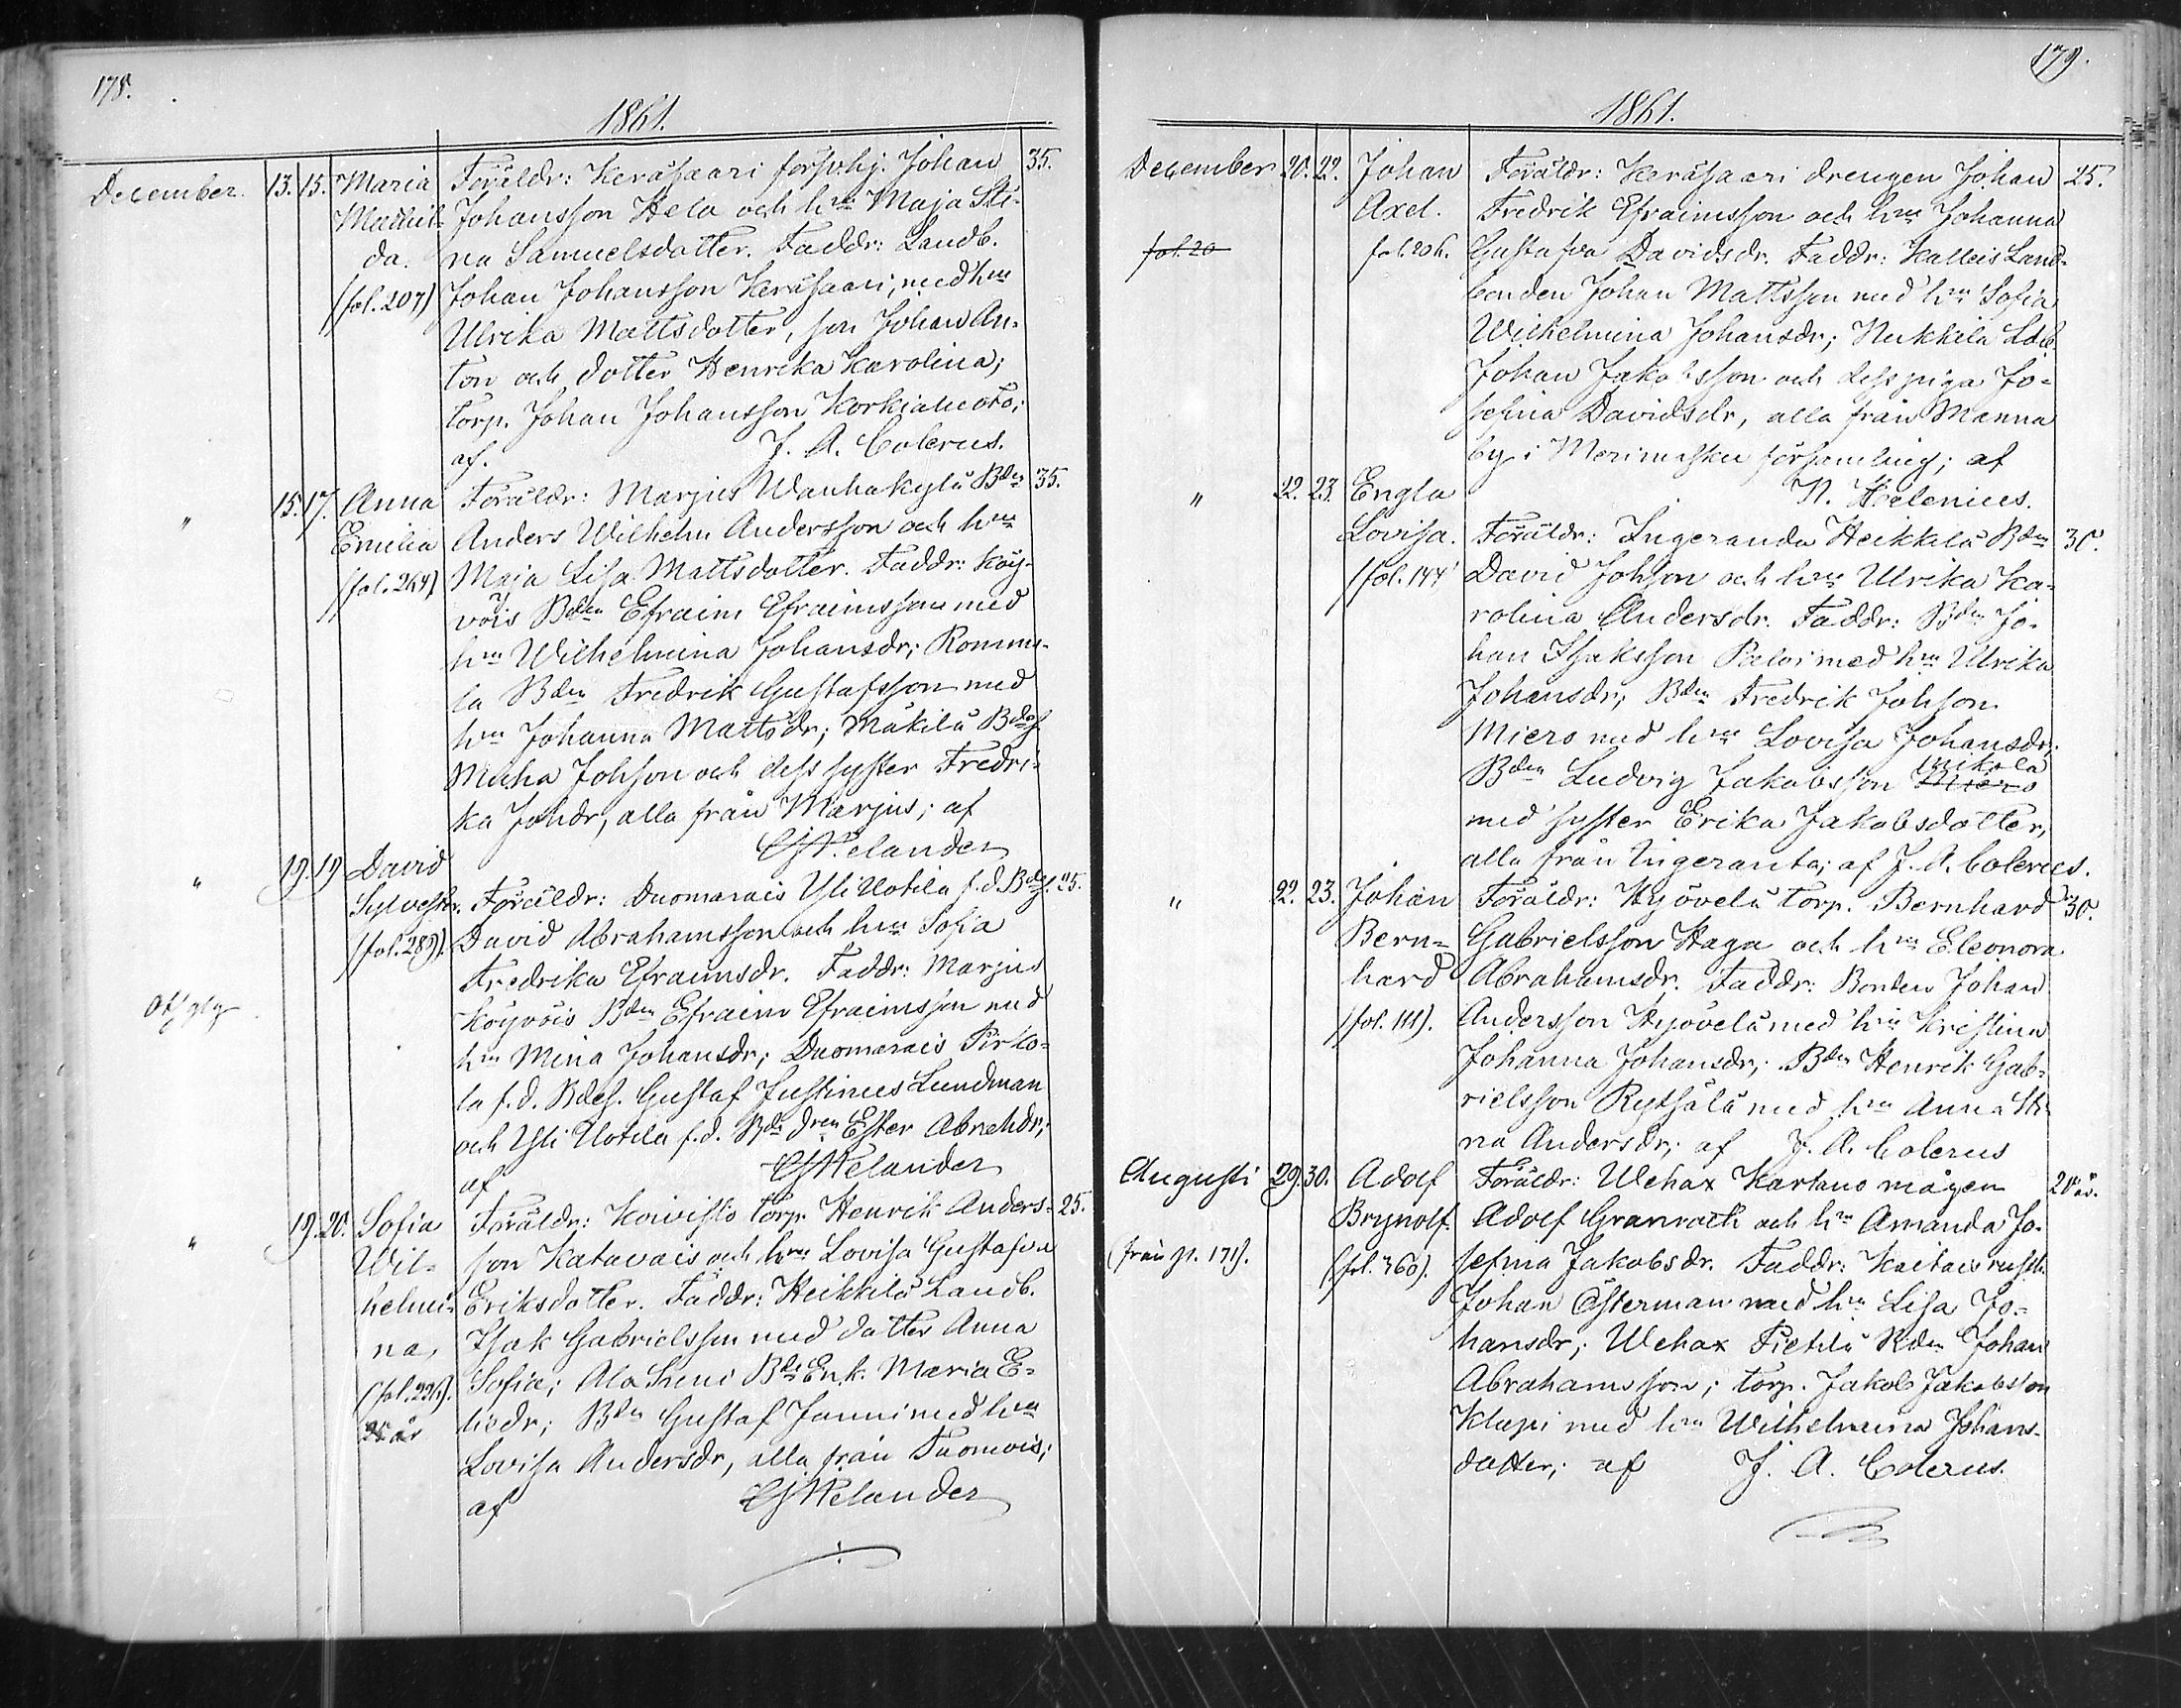 178.
1861.
December. 13. 15. Maria Föräldr: Keräsaari försvhj. Johan 35.
Mathil- Johansson Hela och hru Maja Sti-
da. na Samuelsdotter. Faddr: Landb.
(fol. 207) Johan Johansson Keräsaari, med hru
Ulrika Mattsdotter, son Johan An-
ton och dotter Henrika Karolina;
torp. Johan Johansson Korkiamoto;
af. J. A. Colerus.
" 15. 17. Anna Föräldr: Marjus Wanhakylä Bden 35.
Emilia Anders Wilhelm Andersson och hru
(fol. 264) Maja Lisa Mattsdotter. Faddr: Köy-
vöis Bden Efraim Efraimsson med
hru Wilhelmina Johansdr; Rommi-
la Bden Fredrik Gustafsson med
hru Johanna Mattsdr; Mäkilä Bdes.
Micha Johsson och dess syster Fredri-
ka Johdr, alla från Marjus; af
Welander
" 19. 19 David
Sylvester. Föräldr: Duomarais Yli Uotila f.d. Bdes. 25.
(fol. 289). David Abrahamsson och hru Sofia
Fredrika Efraimsdr. Faddr: Marjus
Köyvöis Bden Efraim Efraimsson med
hru Mina Johansdr; Duomarais Pirko-
la f.d. Bdes. Gustaf Justinus Lundman
och Yli Uotila f.d. Bde dren Ester Abrahdr;
af Welander
" 19. 20. Sofia Föräldr: Koivisto torp. Henrik Anders- 25.
Wil- son Katavais och hru Lovisa Gustafva
helmi- Eriksdotter. Faddr: Heikkilä Landb.
na, Isak Gabrielsson med dotter Anna
(fol. 226). Sofia; Ala Sieni Bde Enk. Maria E-
25 år liedr; Bden Gustaf Janni med hru
Lovisa Andersdr, alla från Tuomois;
af Welander
179.
1861.
December 20. 22. Johan Föräldr: Keräsaari drengen Johan 25.
Axel. Fredrik Efraimsson och hru Johanna
fol. 20 fol. 206. Gustafva Davidsdr. Faddr: Kalleis Land-
bonden Johan Mattsson med hru Sofia
Wilhelmina Johansdr; Nukkila Ldb.
Johan Jakobsson och dess piga Jo-
sefina Davidsdr, alla från Manna
by i Merimasku församling; af
" 22. 23. Engla N. Helenius.
Lovisa. Föräldr: Ingeranda Heikkilä Bden 30.
(fol. 144 David Johsson och hru Ulrika Ka-
rolina Andersdr. Faddr: Bden Jo-
han Isaksson Pelvi med hru Ulrika
Johansdr; Bden Fredrik Johsson
Miero med hru Lovisa Johansdr;
Mikola
Bden Ludvig Jakobsson Miero
med syster Erika Jakobsdotter,
alla från Ingeranta; af J. A. Colerus.
" 22. 23. Johan Föräldr: Hyövelä torp. Bernhard 30.
Bern- Gabrielsson Haga och hru Eleonora
hard Abrahamsdr. Faddr: Bonden Johan
(fol. 111). Andersson Hyövelä med hru Kristina
Johanna Johansdr; Bden Henrik Gab-
rielsson Rytsälä med hru Anna Sti-
na Andersdr; af J. A. Colerus
Augusti 29. 30. Adolf Föräldr: Wehax Kartano mågen 20 år.
Brynolf. Adolf Granroth och hru Amanda Jo-
(från p. 171). (fol. 360). sefina Jakobsdr. Faddr: Kaitais rusth.
Johan Österman med hru Lisa Jo-
hansdr; Wehax Pietilä Bden Johan
Abrahamsson; torp. Jakob Jakobsson
Klapi med hru Wilhelmina Johans-
dotter; af J. A. Colerus.